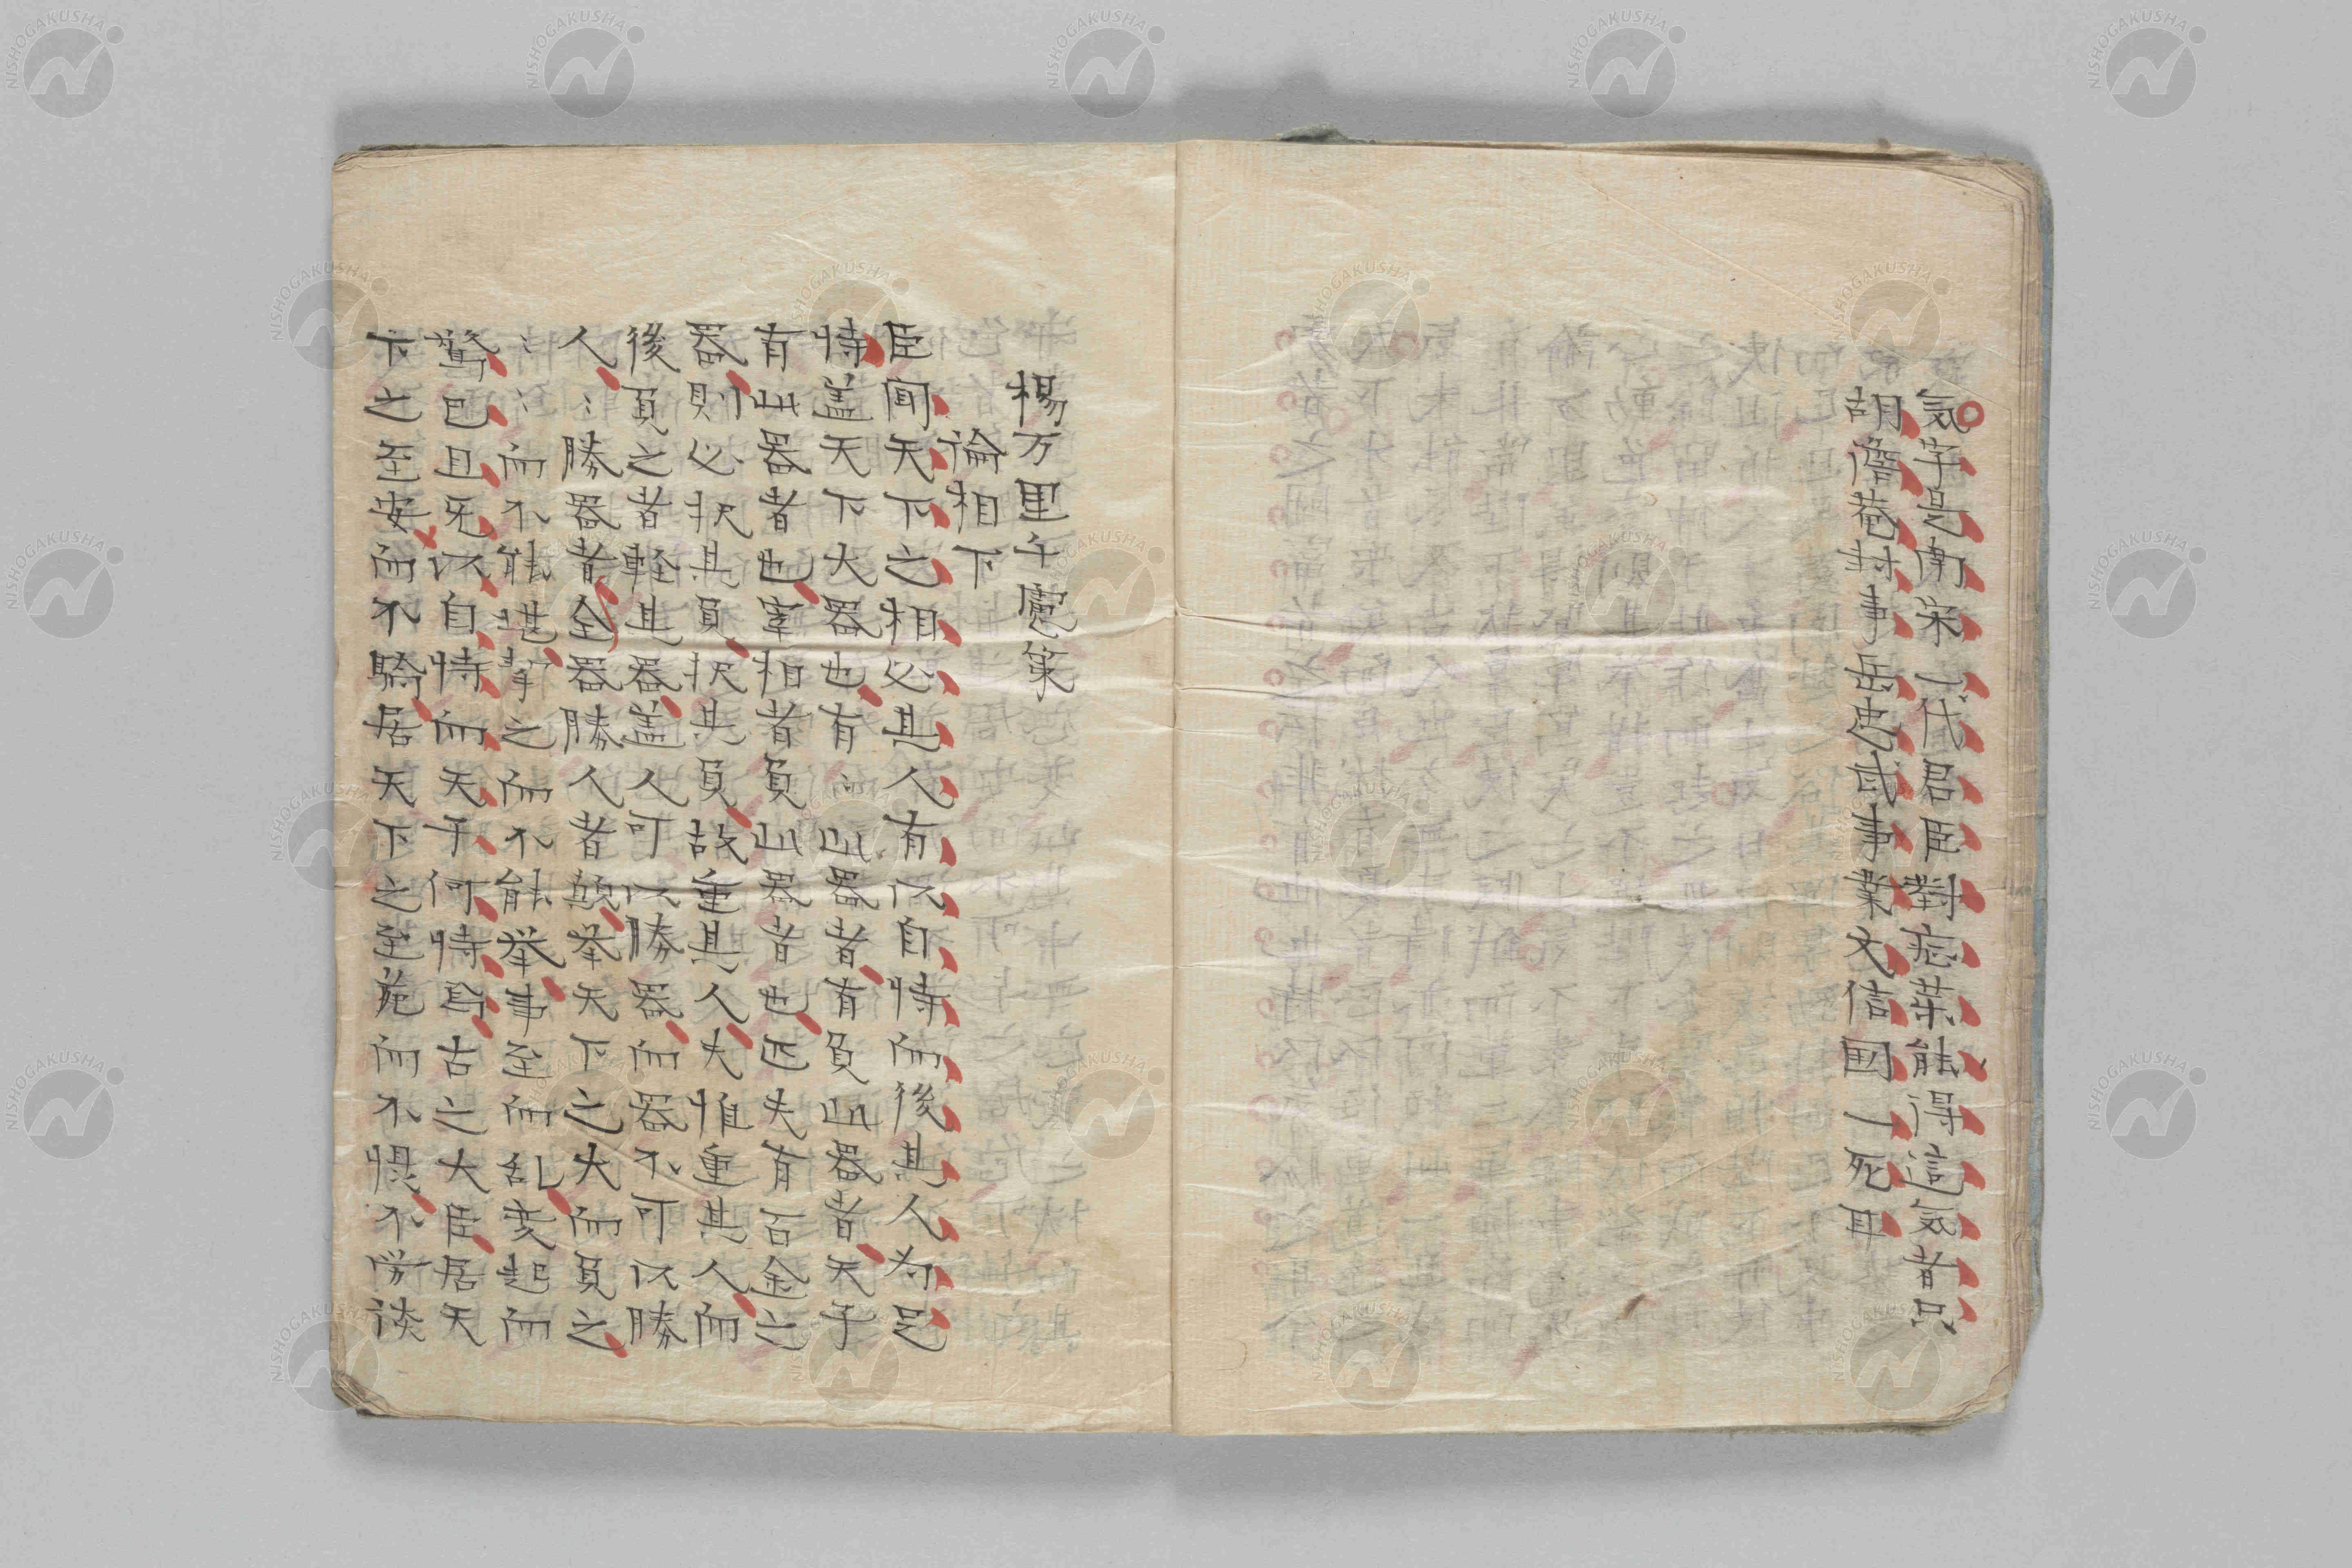 気字是南宋一代君臣對症薬能得這気者只
胡澹菴封事岳忠武事業文信国一死耳
楊万里千慮策
論相下
臣聞天下之相必其人有以自恃而後其人為足
恃盖天下大器也有〻此器者有負此器者天子
有此器者也宰相者負此器者也匹夫有百金之
器則必択其負択其負故重其人夫惟重其人而
後負之者軽其器盖人可以勝器而器不可以勝
人〻勝器者全器勝人者顛挙天下之大而負之
〻〻而不能堪挈之而不能挙事至而乱変起而
驚已且无以自恃而天子何恃焉古之大臣居天
下之至安而不驕居天下之至危而不惧不労談
NISHOGAKUSHA